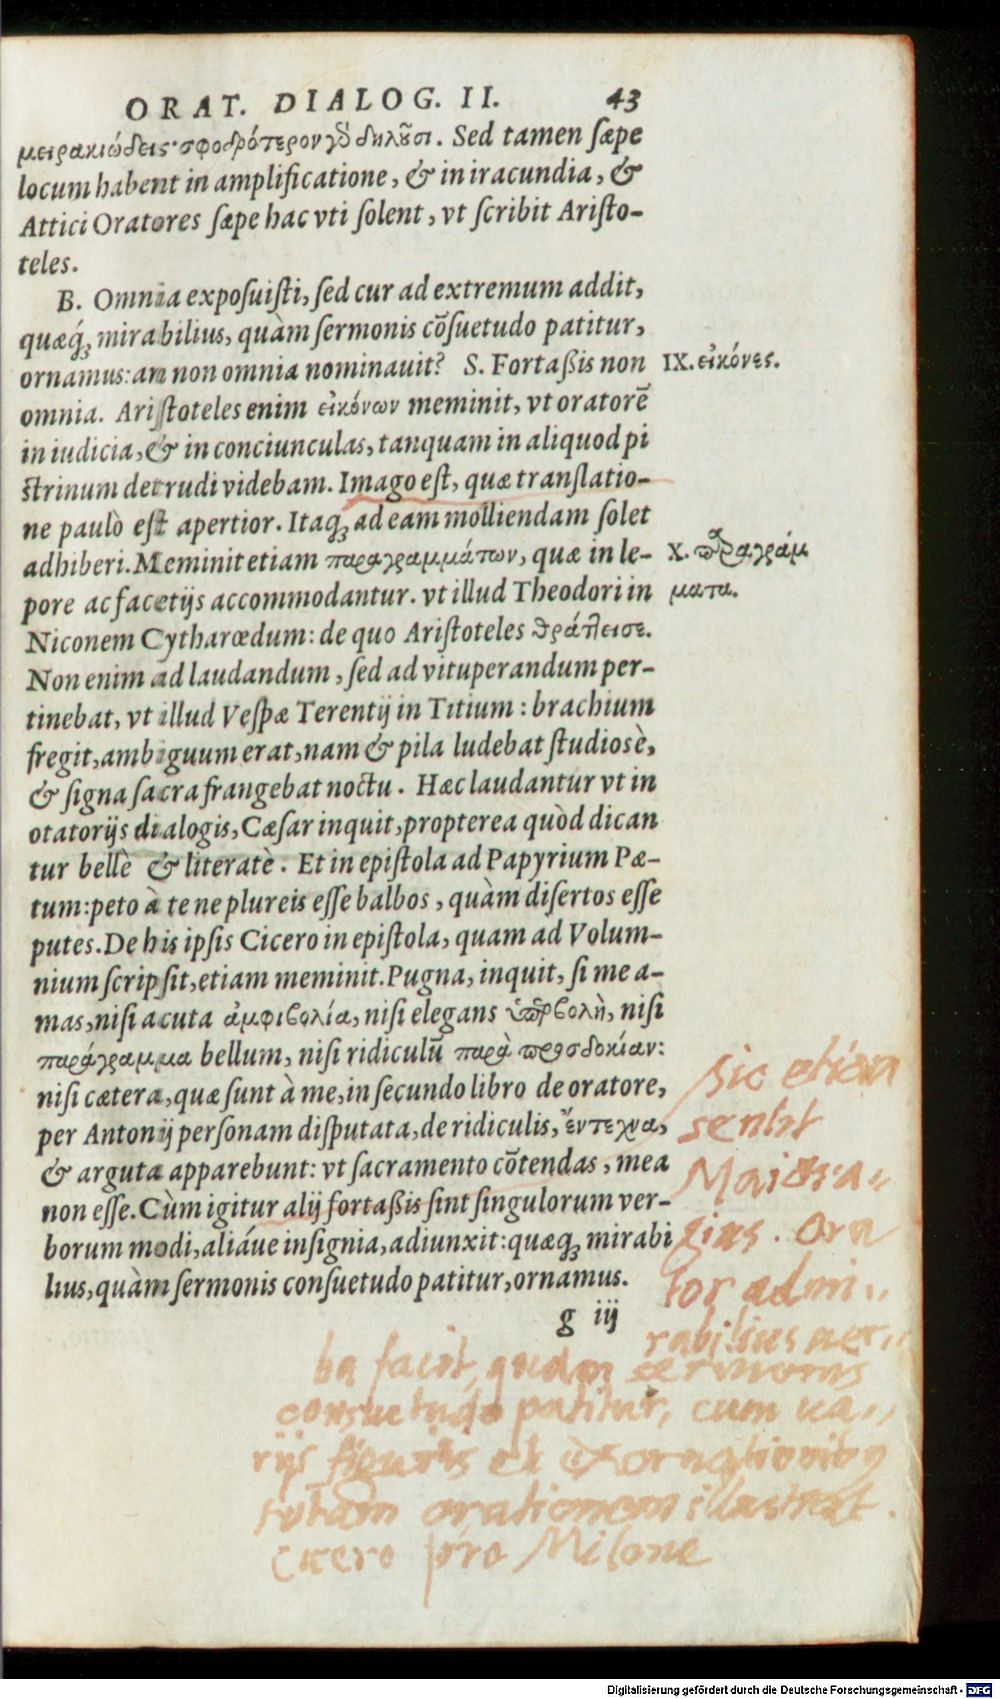 ORAT. DIALOG. II. 43
μειρακιώδεις· σφοδρότερον γὸ δηλȣ͂σι. Sed tamen sæpe
locum habent in amplificatione, & in iracundia, &
Attici Oratores sæpe hac vti solent, vt scribit Aristo-
teles.
B. Omnia exposuisti, sed cur ad extremum addit,
quæq́; mirabilius, quàm sermonis cõsuetudo patitur,
ornamus: an non omnia nominauit? S. Fortaßis non
IX. εἰκόνες.
omnia. Aristoteles enim εἰκόνων meminit, vt oratorẽ
in iudicia, & in conciunculas, tanquam in aliquod pi
strinum detrudi videbam. Imago est, quæ translatio-
ne paulò est apertior. Itaq; ad eam molliendam solet
adhiberi. Meminit etiam παραγραμμάτων, quæ in le-
X. παραγράμ
pore ac facetijs accommodantur. vt illud Theodori in
ματα.
Niconem Cytharœdum: de quo Aristoteles θράττεισε.
Non enim ad laudandum, sed ad vituperandum per-
tinebat, vt illud Vespæ Terentij in Titium: brachium
fregit, ambiguum erat, nam & pila ludebat studiosè,
& signa sacra frangebat noctu. Hæc laudantur vt in
otatorijs dialogis, Cæsar inquit, propterea quòd dican
tur bellè & literatè. Et in epistola ad Papyrium Pæ-
tum: peto à te ne plureis esse balbos, quàm disertos esse
putes. De his ipsis Cicero in epistola, quam ad Volum-
nium scripsit, etiam meminit. Pugna, inquit, si me a-
mas, nisi acuta ἀμφιβολία, nisi elegans ὑπερβολὴ, nisi
παράγραμμα bellum, nisi ridiculũ παρὰ προσδοκίαν:
nisi cætera, quæ sunt à me, in secundo libro de oratore,
per Antonij personam disputata, de ridiculis, ἔντεχνα,
& arguta apparebunt: vt sacramento cõtendas, mea
non esse. Cùm igitur alij fortaßis sint singulorum ver-
borum modi, aliáue insignia, adiunxit: quæq; mirabi
lius, quàm sermonis consuetudo patitur, ornamus.
g iij
sic etiam
sentit
Maiora=
gius. Ora
tor admi=
rabilius uer=
ba facit, quam sermonis
consuetudo patitur, cum ua=
rijs figuris et exornationibus
totam orationem illustrat.
Cicero pro Milone